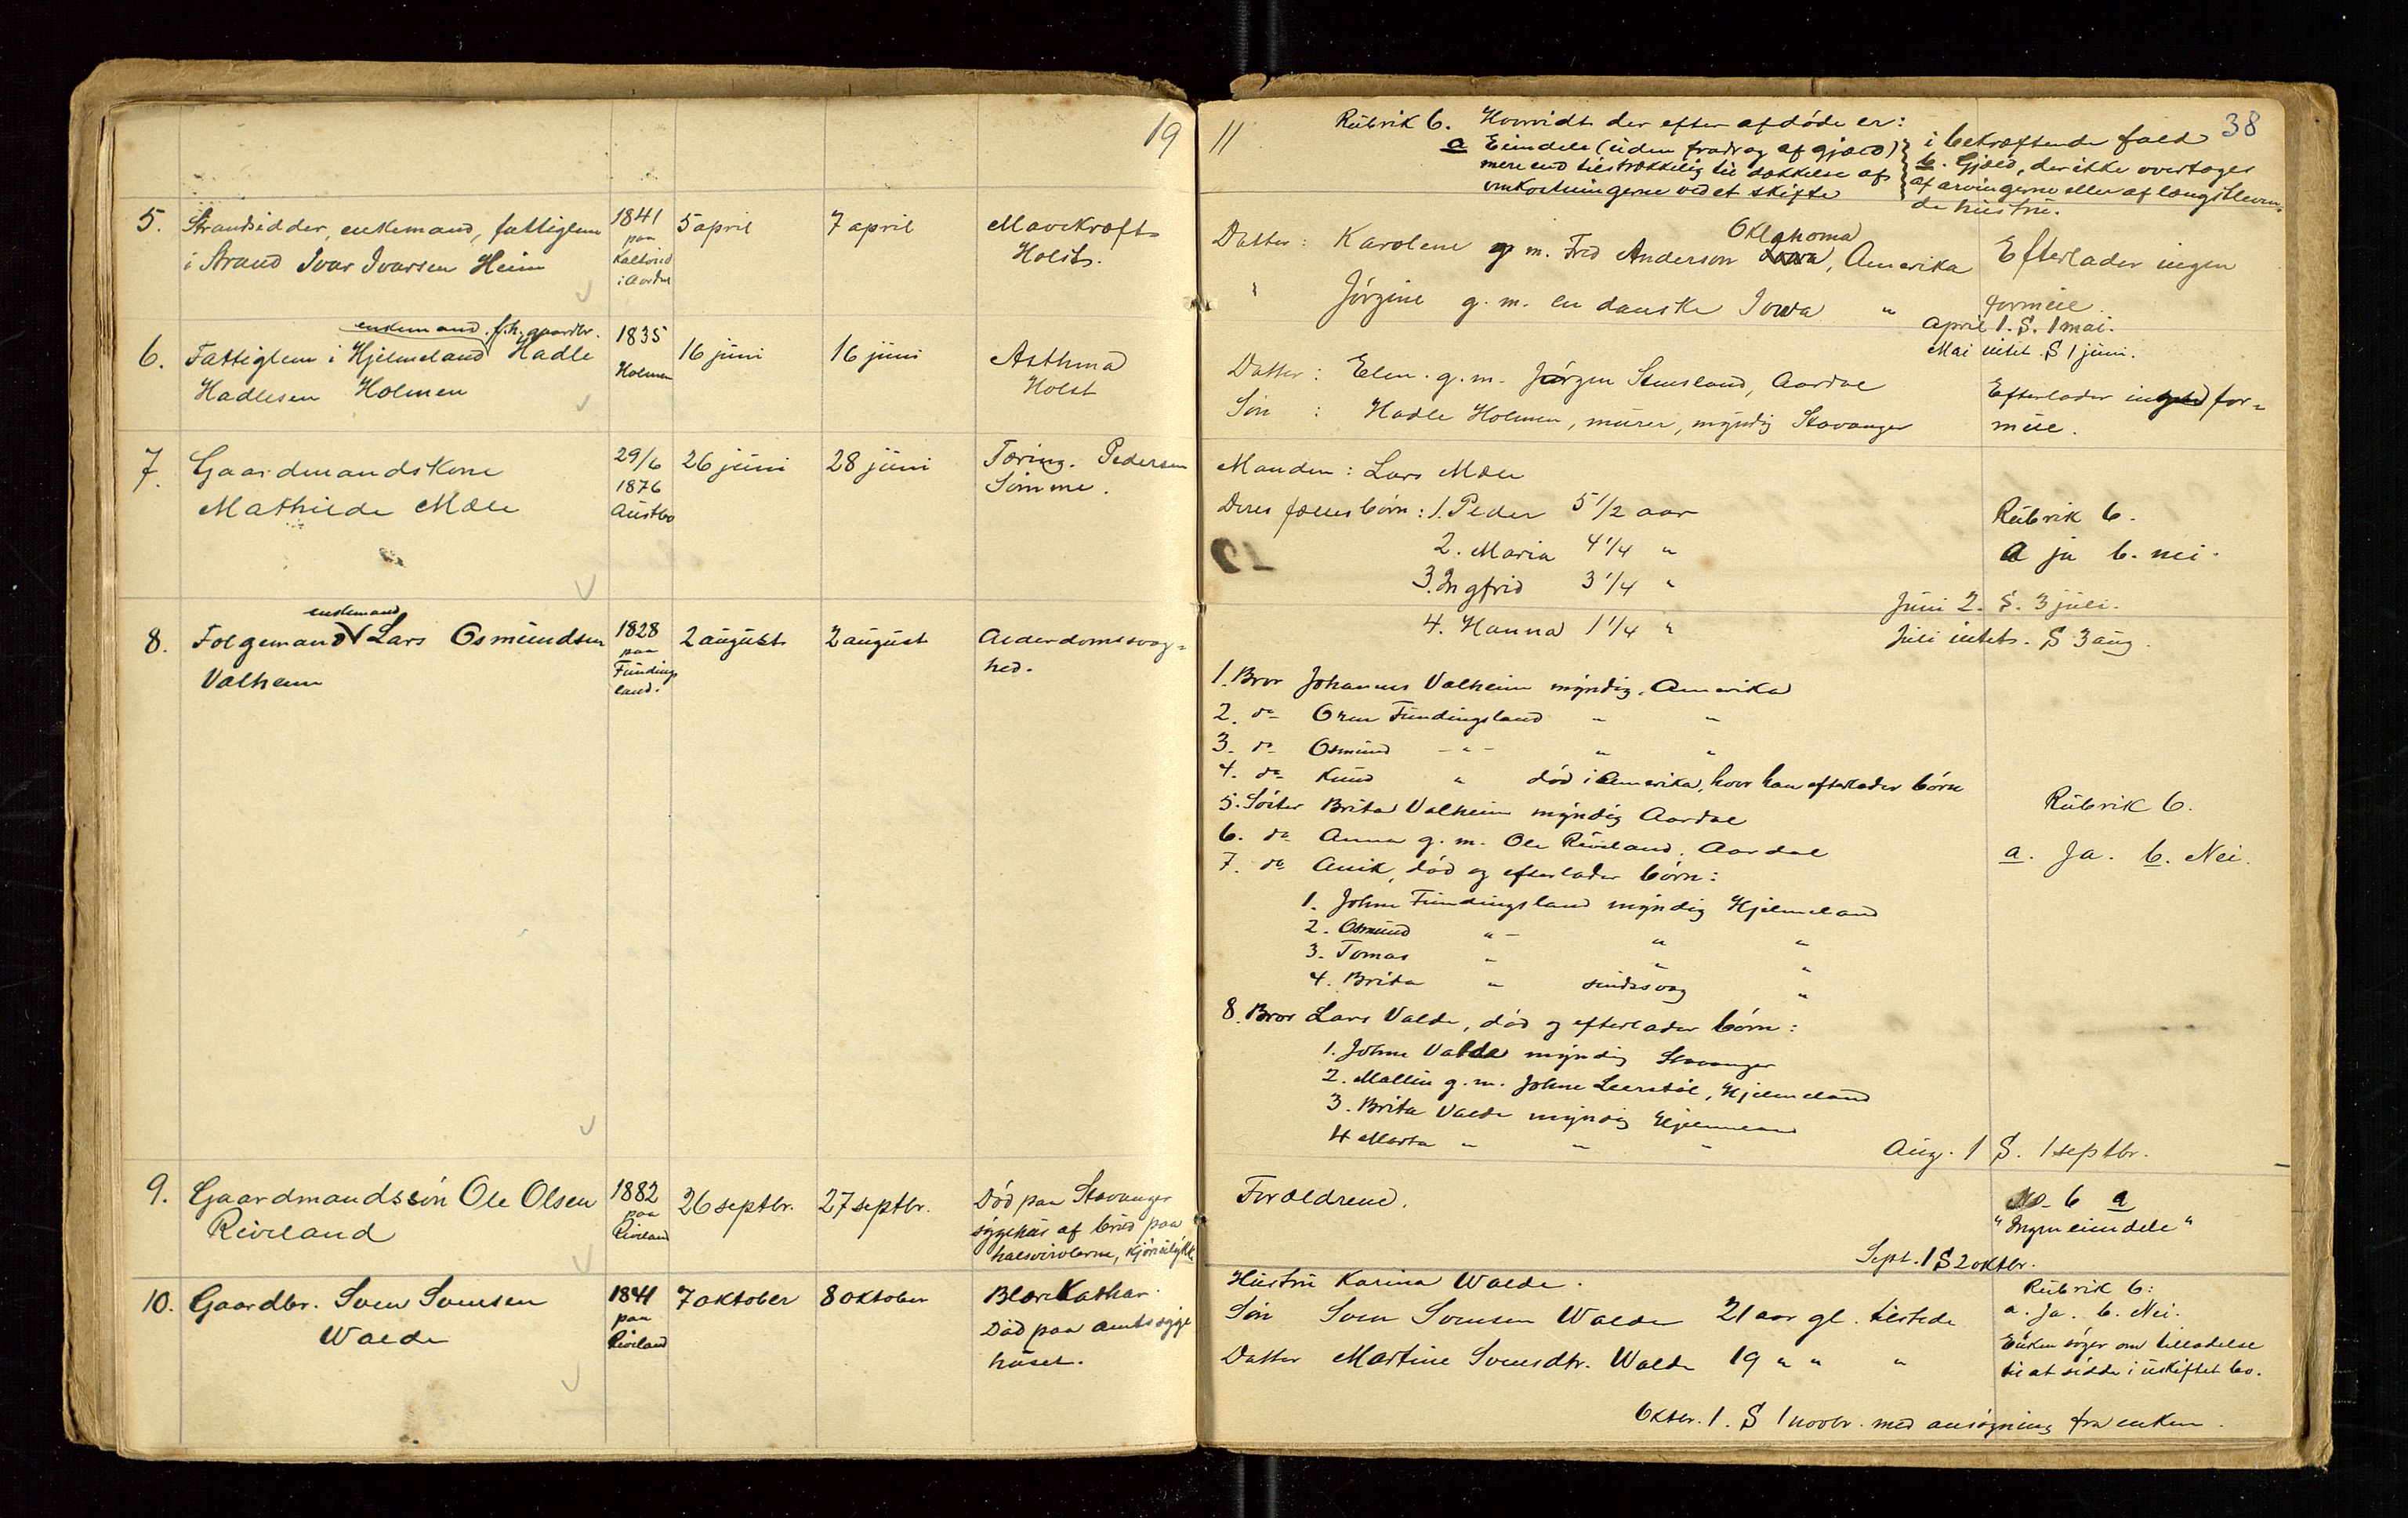 19
5. Strandsidder, enkemand, fattiglem
i Strand Ivar Ivarsen Heim
1841
paa
i Aardal
5 april
7 april
Mavekræft
Holst.
enkemand, f.h. gaardbr.
6. Fattiglem i Hjelmeland Hadle
Hadlesen Holmen
1835
Holmen
16 juni
16 juni
Asthma
Holst
7. Gaardmandskone
Mathilde Mæle
29/6
1876
Austbø
26 juni
28 juni
Tæring. Pedersen
Sømme.
enkemand
8. Folgemand Lars Osmundsen
Valheim
1828
paa
Fundings
land.
2 august
2 august
Alderdomssvag=
hed.
9. Gaardmandssøn Ole Olsen
Riveland
1882
paa
Riveland
26 septbr.
27 septbr.
Død paa Stavanger
sygehus af brud paa
halsvirvlerne, kjøreulykke
10. Gaardbr. Sven Svensen
Valde
1841
paa
Riveland
7 oktober
8 oktober
Blærekathar.
Død paa amtssyge
huset.
11
38
Rubrik 6. Hvorvidt der efter afdøde er:
a Eiendele (uden fradrag af gjæld)
mere end tilstrækkelig til dækkelse af
omkostningerne ved et skifte
i bekræftende fald
b. Gjæld, der ikke overtages
af arvingerne eller af længstleven=
de hustru.
Oklahoma
Datter: Karolene g. m. Fred Anderson Iowa, Amerika
" Jørgine g. m. en danske Iowa "
Efterlader ingen
formue.
April 1. S. 1 mai.
Mai intet. S 1 juni.
Datter: Elen g. m. Jørgen Stensland, Aardal
Søn : Hadle Holmen, murer, myndig Stavanger
Efterlader ingen for=
mue.
Manden: Lars Mæle
Deres fællesbørn: 1. Peder 5 1/2 aar
2. Maria 4 1/4 "
3. Ingfrid 3 1/4 "
4. Hanna 1 1/4 "
Rubrik 6.
a ja b. nei.
Juni 2. S. 3 juli.
Juli intet. S 3 aug.
1. Bror Johannes Valheim myndig, Amerika
2. do Orm Fundingsland " "
3. do Osmund - " - " "
4. do Knud " død i Amerika, hvor han efterlader børn
5. Søster Brita Valheim myndig Aardal
6. do Anna g. m. Ole Riveland, Aardal
7. do Anik, død og efterlader børn:
1. Johne Fundingsland myndig Hjelmeland
2. Osmund " " "
3. Tomas " " "
4. Brita " sindssvag "
8. Bror Lars Valde, død og efterlader børn:
1. Johne Valde myndig Stavanger
2. Mallin g. m. Johne Leerstøl, Hjelmeland
3. Brita Valde myndig Hjelmeland
4 Marta " " "
Rubrik 6.
a. Ja. b. Nei.
Aug. 1 S. 1 septbr.
Forældrene.
No. 6 a
"Ingen eiendele"
Sept. 1 S 2 oktbr.
Hustru Karina Valde.
Søn Sven Svensen Valde 21 aar gl. tilstede
Datter Martine Svensdtr. Valde 19 " " "
Rubrik 6:
a. Ja. b. Nei.
Enken søger om tilladelse
til at sidde i uskiftet bo.
Oktbr. 1. S 1 novbr. med ansøgning fra enken.